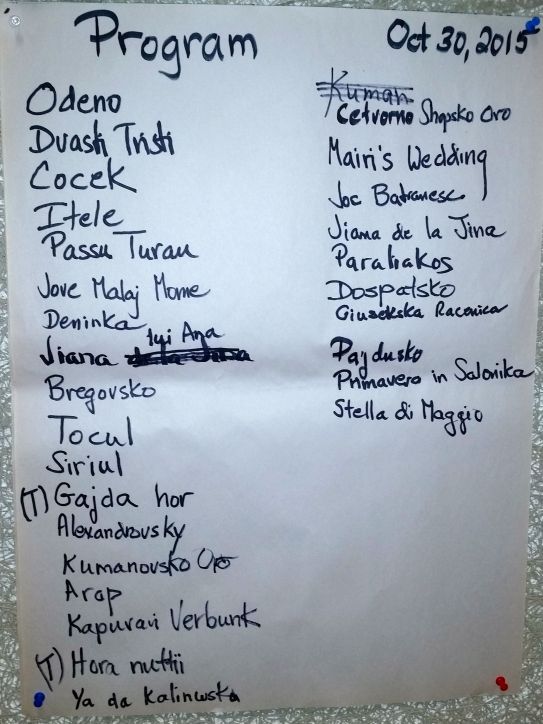 Program
Oct 30, 2015
Odeno
Dvasti Tristi
Cocek
Itele
Passu Turau
Jove Malaj Mome
Deninka
Jiana lui Ana
Bregovsko
Tocul
Siriul
(T) Gajda hor
Alexandrovsky
Kumanovsko Oro
Arap
Kapuvari Verbunk
(T) Hora nuttii
Ya da Kalinuska
Kuman
Cetvorno Shopsko Oro
Mairi's Wedding
Joc Batranesc
Jiana de la Jina
Paraliakos
Dospatsko
Giusevska Racenica
Pajdusko
Primavera in Salonika
Stella di Maggio